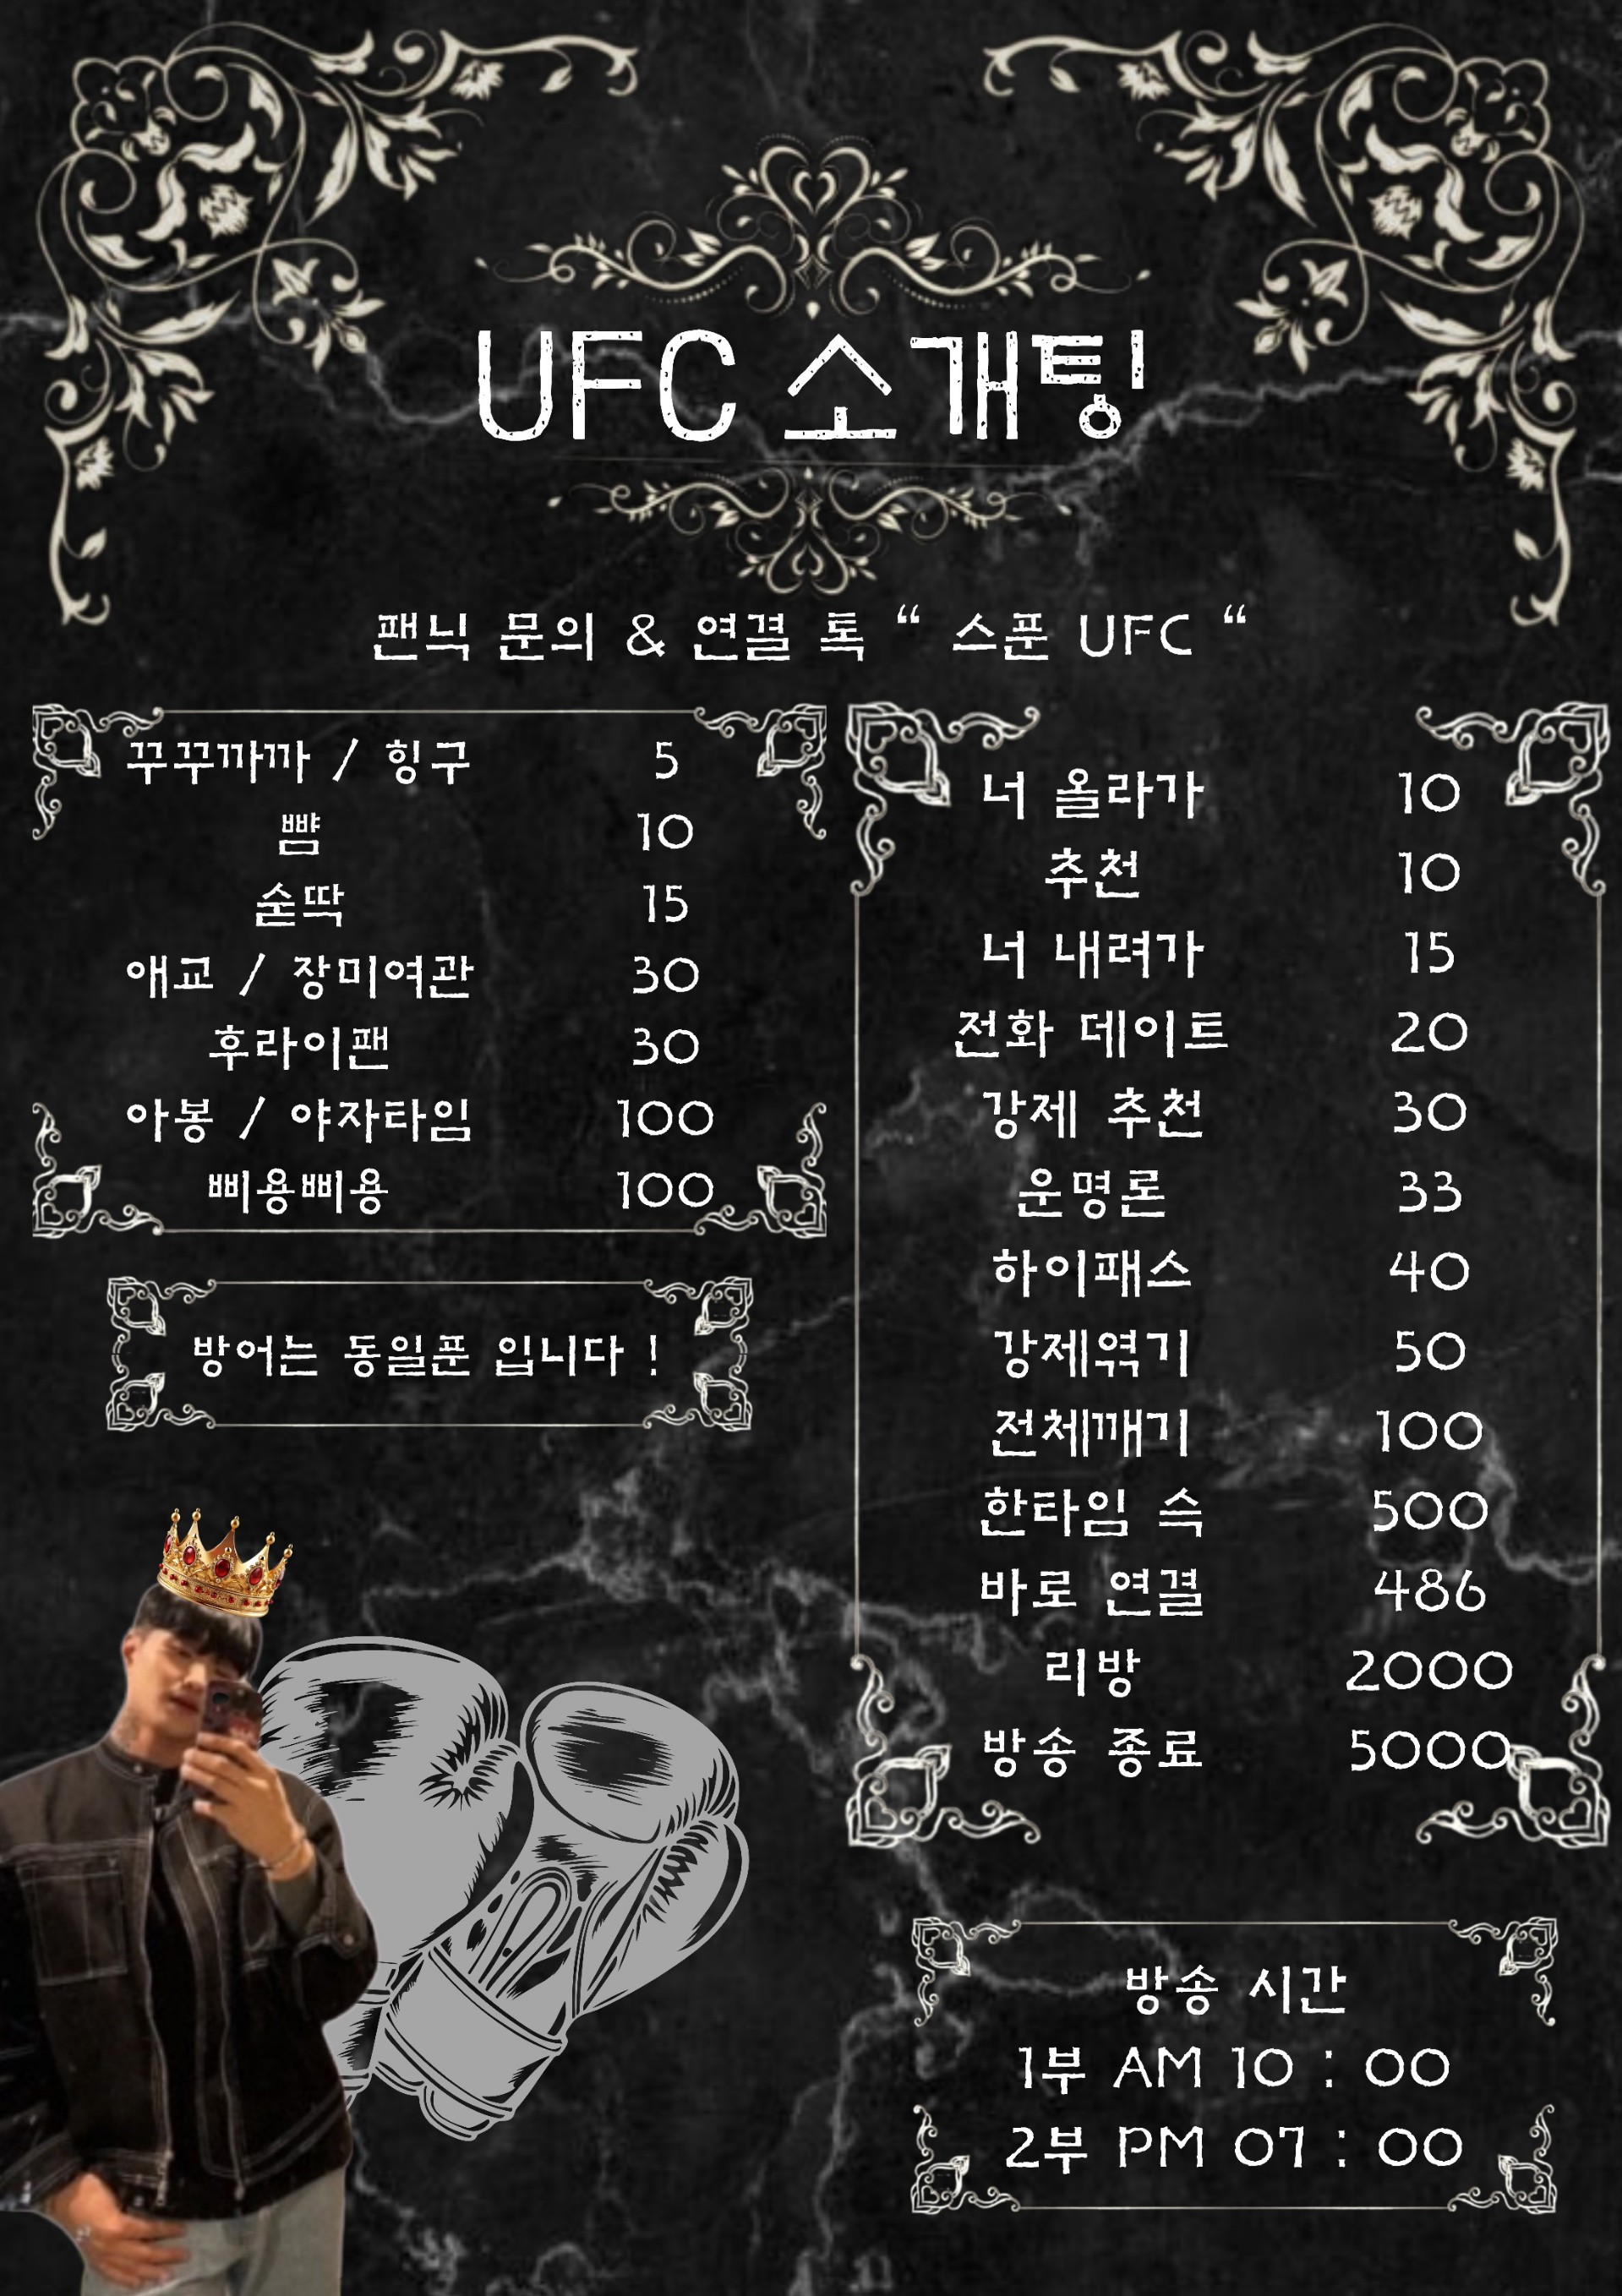 UFC 소개팅
팬닉 문의 & 연결 톡 “ 스푼 UFC “
꾸꾸까까 / 힝구 5
뺨 10
숟딱 15
애교 / 장미여관 30
후라이팬 30
아봉 / 야자타임 100
삐용삐용 100
방어는 동일푼 입니다 !
너 올라가 10
추천 10
너 내려가 15
전화 데이트 20
강제 추천 30
운명론 33
하이패스 40
강제엮기 50
전체깨기 100
한타임 슥 500
바로 연결 486
리방 2000
방송 종료 5000
방송 시간
1부 AM 10 : 00
2부 PM 07 : 00